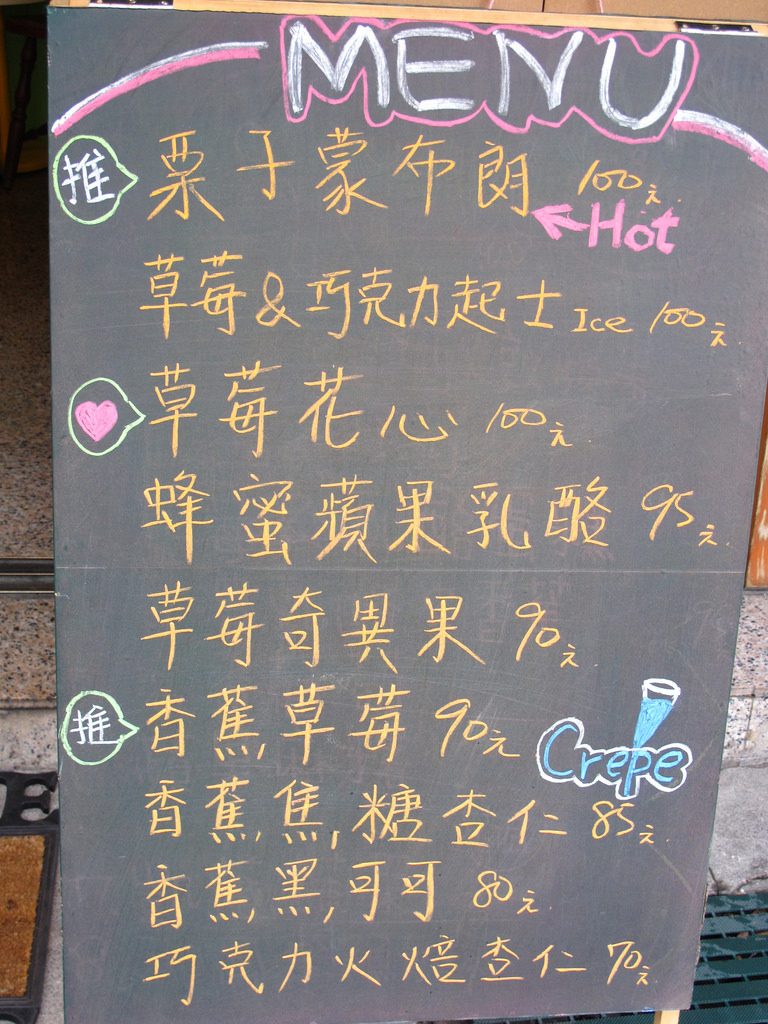 MENU
推 栗子蒙布朗 100元
Hot
草莓&巧克力起士 Ice 100元
草莓花心 100元
蜂蜜蘋果乳酪 95元
草莓奇異果 90元
推 香蕉,草莓 90元
Crepe
香蕉,焦,糖杏仁 85元
香蕉,黑,可可 80元
巧克力火焙杏仁 70元